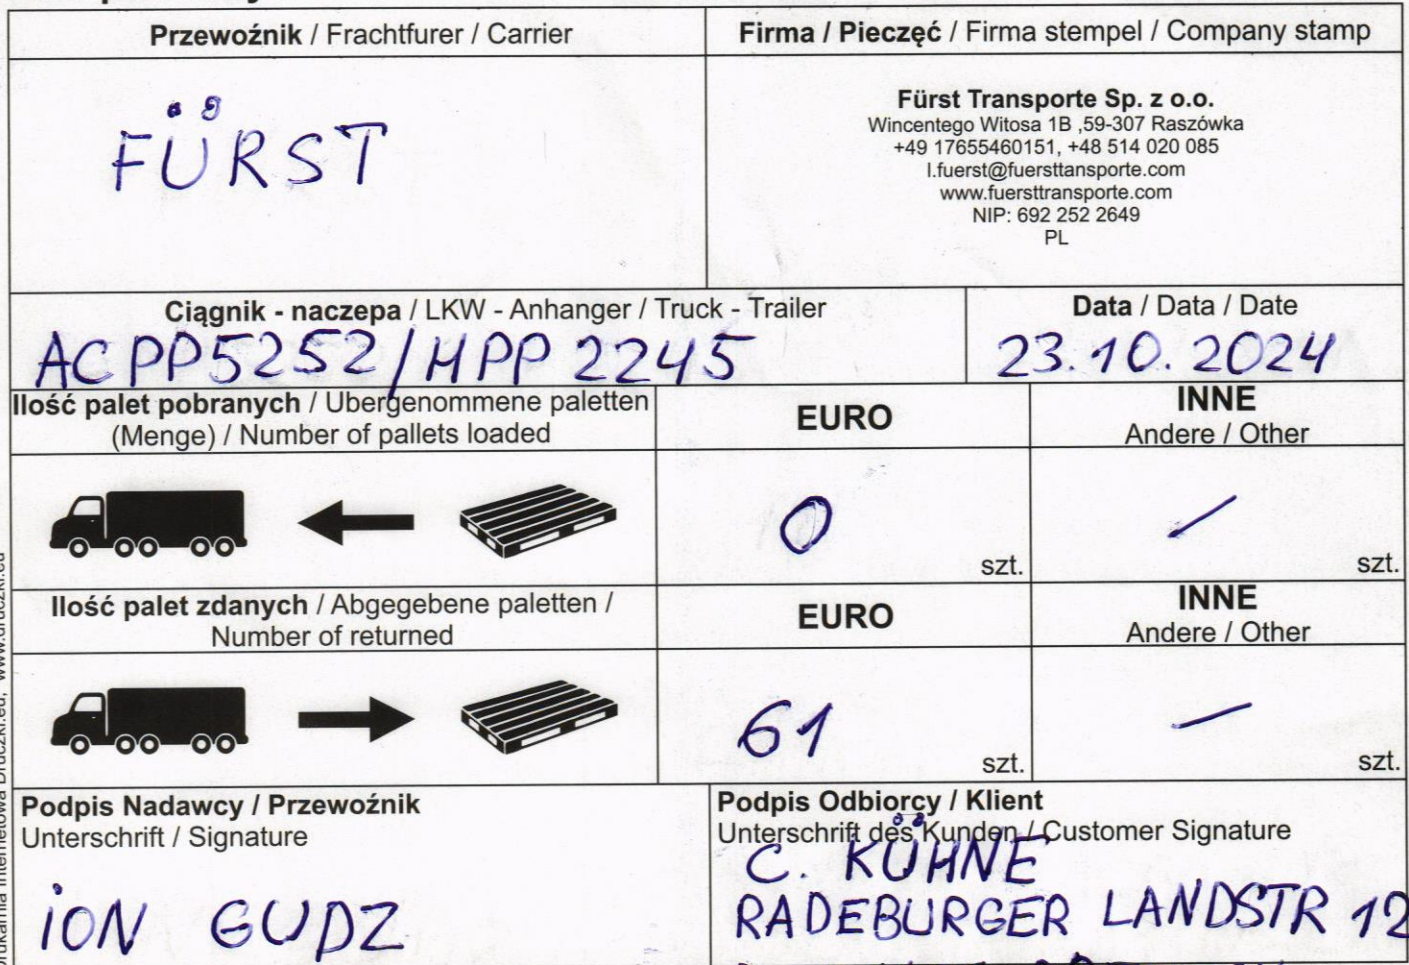 Przewoźnik / Frachtfurer / Carrier
Firma / Pieczęć / Firma stempel / Company stamp
FÜRST
Fürst Transporte Sp. z o.o.
Wincentego Witosa 1B ,59-307 Raszówka
+49 17655460151, +48 514 020 085
l.fuerst@fuersttansporte.com
www.fuersttransporte.com
NIP: 692 252 2649
PL
Ciągnik - naczepa / LKW - Anhanger / Truck - Trailer
Data / Data / Date
ACPP5252/HPP 2245
23.10.2024
Ilość palet pobranych / Ubergenommene paletten
(Menge) / Number of pallets loaded
EURO
INNE
Andere / Other
0
szt.
szt.
Ilość palet zdanych / Abgegebene paletten /
Number of returned
EURO
INNE
Andere / Other
61
szt.
szt.
Podpis Nadawcy / Przewoźnik
Unterschrift / Signature
ION GUDZ
Podpis Odbiorcy / Klient
Unterschrift des Kunden / Customer Signature
C. KÜHNE
RADEBURGER LANDSTR 12
Drukarnia Internetowa Druczki.eu, www.druczki.eu